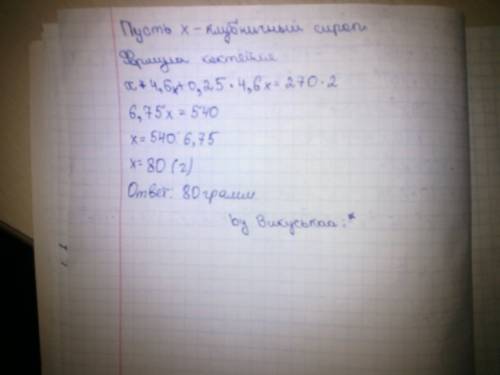 Пусть x - клубничный сироп.
Формула коктейля
x+4,6x+0,25·4,6x=270·2
6,75x=540
x=540:6,75
x=80(г)
Ответ: 80 грамм
by Викуськаа:*